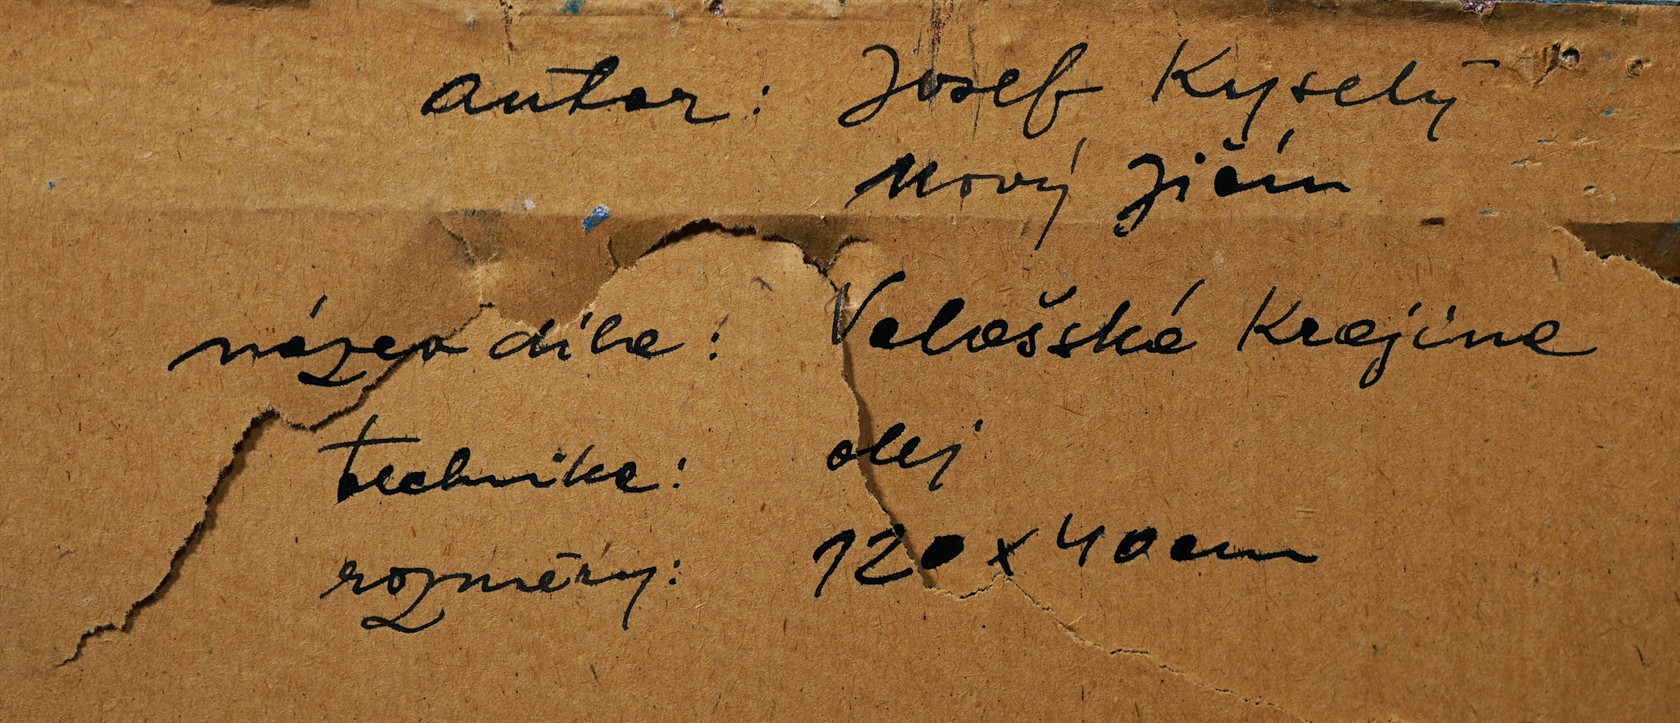 autor: Josef Kyselý
Nový Jičín
název díla: Valašská Krajina
technika: olej
rozměry: 120x40cm